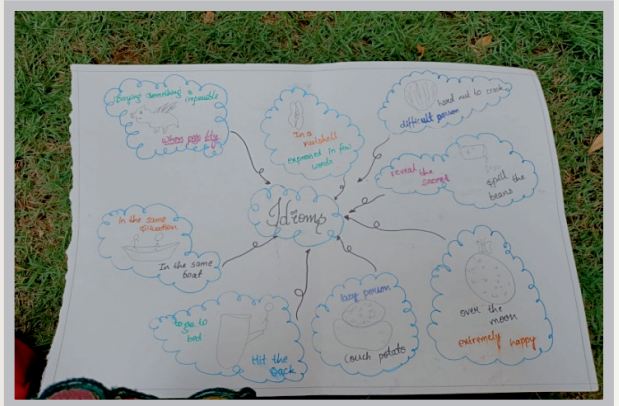 Saying something is impossible
when pigs fly
In a
nutshell
expressed in few
words
hard nut to crack
difficult person
reveal the
secret
spill the
beans
Idioms
In the same
situation
In the same
boat
to go to
bed
Hit the
sack
lazy person
Couch potato
over the
moon
extremely happy